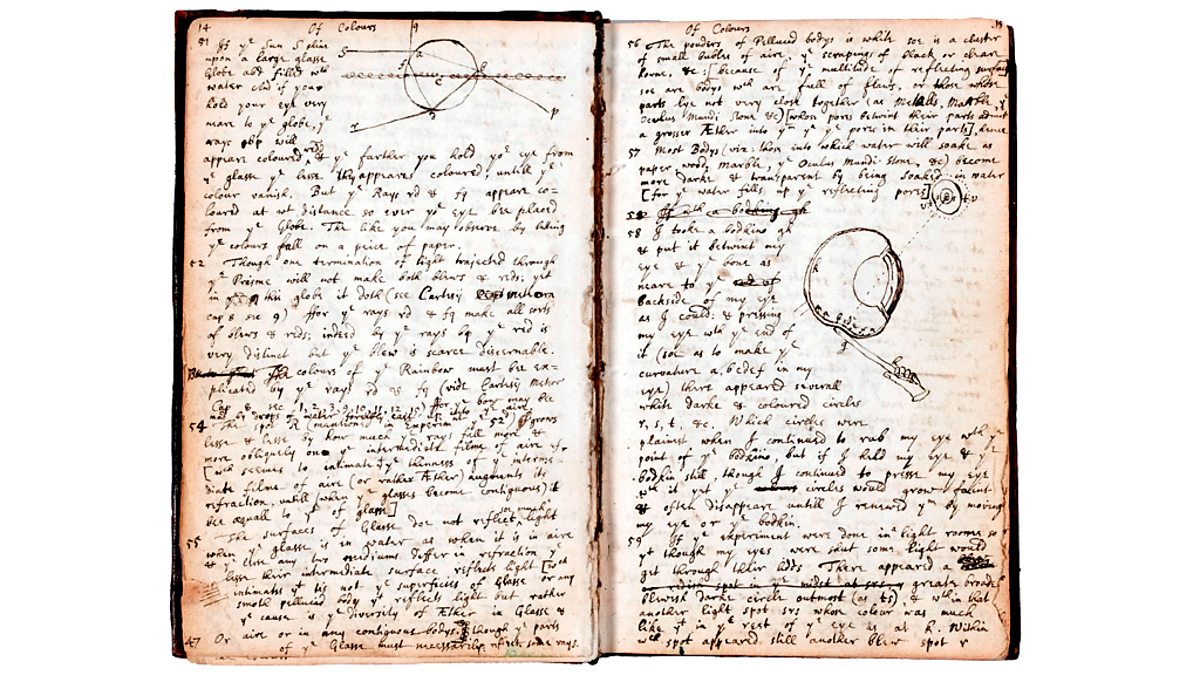 14
Of Colours
51 If yᵉ Sun S shine
upon a large glasse
Globe abd filled wᵗʰ
water and if you
hold your eye very
neare to yᵉ globe, yᵉ
rays obp will
appeare coloured reds, & yᵉ farther you hold yoʳ eye from
yᵉ glasse yᵉ lesse they appeare coloured, untill yᵉ
colour vanish. But yᵉ Rays rd & fq appeare co-
loured at wᵗ distance so ever yᵉ eye bee placed
from yᵉ Globe. The like you may observe by letting
yᵉ colours fall on a peice of paper.
52 Though one termination of light trajected through
yᵉ Prisme will not make both blews & reds; yet
in this globe it doth (see Cartesij Meteora
cap 8 sec 9) ffor yᵉ rays rd & fq make all sorts
of blews & reds; indeed by yᵉ rays bq yᵉ red is
very distinct but yᵉ blew is scarce discernable.
The colours of yᵉ Rainbow must bee ex-
plicated by yᵉ rays rd & fq (vide Cartesij Meteor
Cap 8 sec
54 The spot R (mentioned in Experim 52) grows
lesse & lesse by how much yᵉ rays fall more &
more obliquely on yᵉ intermediate filme of aire ef.
[wᶜʰ seemes to intimate yᵗ yᵉ thinness of yᵉ interme-
diate filme of aire (or rather Æther) augments its
refraction, untill (when yᵉ glasses become contiguous) it
bee æquall to yᵗ of glasse]
55 The surfaces of Glasse doe not reflect soe much light
when yᵉ glasse is in water as when it is in aire
& yᵉ lesse any two mediums differ in refraction yᵉ
lesse their intermediate surface reflects light [wᶜʰ
intimates yᵗ tis not yᵉ superficies of Glasse or any
smoth pellucid body yᵗ reflects light but rather
yᵉ cause is yᵉ diversity of Æther in Glasse &
47 Or aire or in any contiguous bodys. though yᵉ parts
of yᵉ Glasse must necessarily reflect some rays.
S
q
a
f
b
c
d
r
p
15
Of Colours
56 The pouders of Pellucid bodys is white soe is a cluster
of small bubles of aire, yᵉ scrapings of black or cleare
horne, &c: [because of yᵉ multitude of reflecting surfaces
soe are bodys wᶜʰ are full of flaws, or those whose
parts lye not very close together (as Metalls, Marble, yᵉ
Oculus Mundi Stone &c) [whose pores betwixt their parts admit
a grosser Æther into yᵐ yⁿ yᵉ pores in their parts], hence
57 Most Bodys (viz: those into which water will soake as
paper, wood, marble, yᵉ Oculus Mundi-stone, &c) become
more darke & transparent by being soaked in water
[for yᵉ water fills up yᵉ reflecting pores]
58 If wᵗʰ a bodking gh
58 I tooke a bodkine gh
& put it betwixt my
eye & yᵉ bone as
neare to yᵉ end of
backside of my eye
as I could: & pressing
my eye wᵗʰ yᵉ end of
it (soe as to make yᵉ
curvature a, bcdef in my
eye) there appeared severall
white darke & coloured circles
r, s, t, &c. Which circles were
plainest when I continued to rub my eye wᵗʰ yᵉ
point of yᵉ bodkine but if I held my eye & yᵉ
bodkin still, though I continued to presse my eye
wᵗʰ it yet yᵉ circles would grow faint
& often disappeare untill I renewed yᵐ by moving
my eye or yᵉ bodkin.
59 If yᵉ experiment were done in a light roome so
yᵗ though my eyes were shut some light would
get through their lidds There appeared a
redish spot in yᵉ midst at srs greate broade
blewish darke circle outmost (as ts), & wᵗʰin that
another light spot srs whose colour was much
like yᵗ in yᵉ rest of yᵉ eye as at k. Within
wᶜʰ spot appeared still another blew spot r